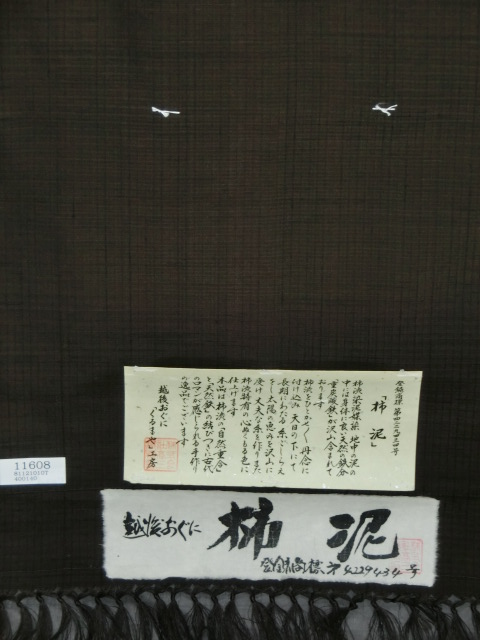 登録商標 第四二二九四三四号
「柿泥」
柿渋染泥媒染 地中の泥の
中には身体に良い天然の鉄分
「重炭酸鉄」が沢山含まれて
おります
柿渋をひとかせ〳〵丹念に
付け込み 天日の下にて
長期にわたる糸ごしらえ
をし 太陽の恵みを沢山に
受け 丈夫な糸を作りまた
柿渋特有の心ぬくもる色に
仕上げます
本品は柿渋の「自然重合」
と「天然鉄」の結びつきに古代
のロマンが感じられる手作り
の逸品でございます
越後おぐに
くるまや工房
越後おぐに 柿泥
登録商標 才4229434号
11608